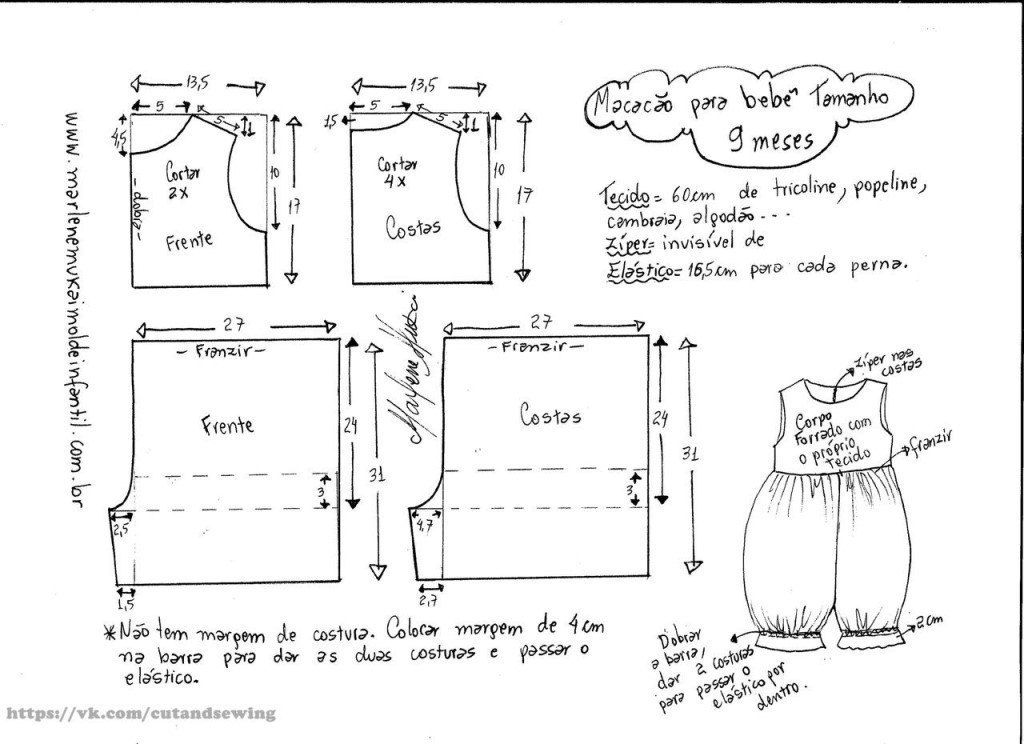 Macacão para bebê Tamanho
9 meses
Tecido = 60cm de tricoline, popeline,
cambraia, algodão...
zíper = invisível de
Elástico = 16,5cm para cada perna.
13,5
5
5
1
4,5
Cortar
2x
- dobra -
Frente
10
17
13,5
5
5
1
1,5
Cortar
4x
Costas
10
17
www.marlenemukaimoldeinfantil.com.br
27
- Franzir -
Frente
24
31
3
2,5
1,5
Marlene Mukai
27
- Franzir -
Costas
24
31
3
4,7
2,7
zíper nas
costas
Corpo
Forrado com
o próprio
tecido
franzir
2cm
Dobrar
a barra,
dar 2 costuras
para passar o
elástico por
dentro.
*Não tem margem de costura. Colocar margem de 4cm
na barra para dar as duas costuras e passar o
elástico.
https://vk.com/cutandsewing